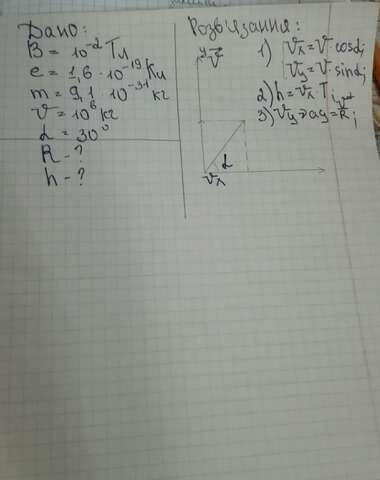 Дано:
B = 10⁻² Тл
e = 1,6 · 10⁻¹⁹ Кл
m = 9,1 · 10⁻³¹ кг
v = 10⁶ кг
α = 30°
R - ?
h - ?
Розв'язання:
y v⃗
α
vx
1) vx = v · cosα;
vy = v · sinα;
2) h = vx T;
3) vy ⇒ ay = R;